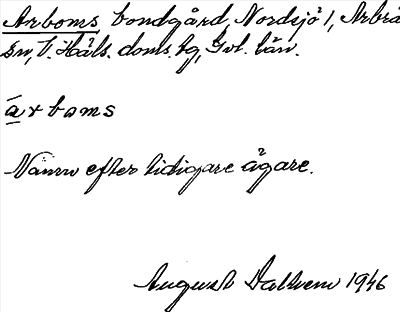 Arboms bondgård, Nordsjö 1, Arbrå
sn, V. Häls. doms. hg, Gvl. län.
arboms
Namn efter tidigare ägare.
August Dalhem 1946